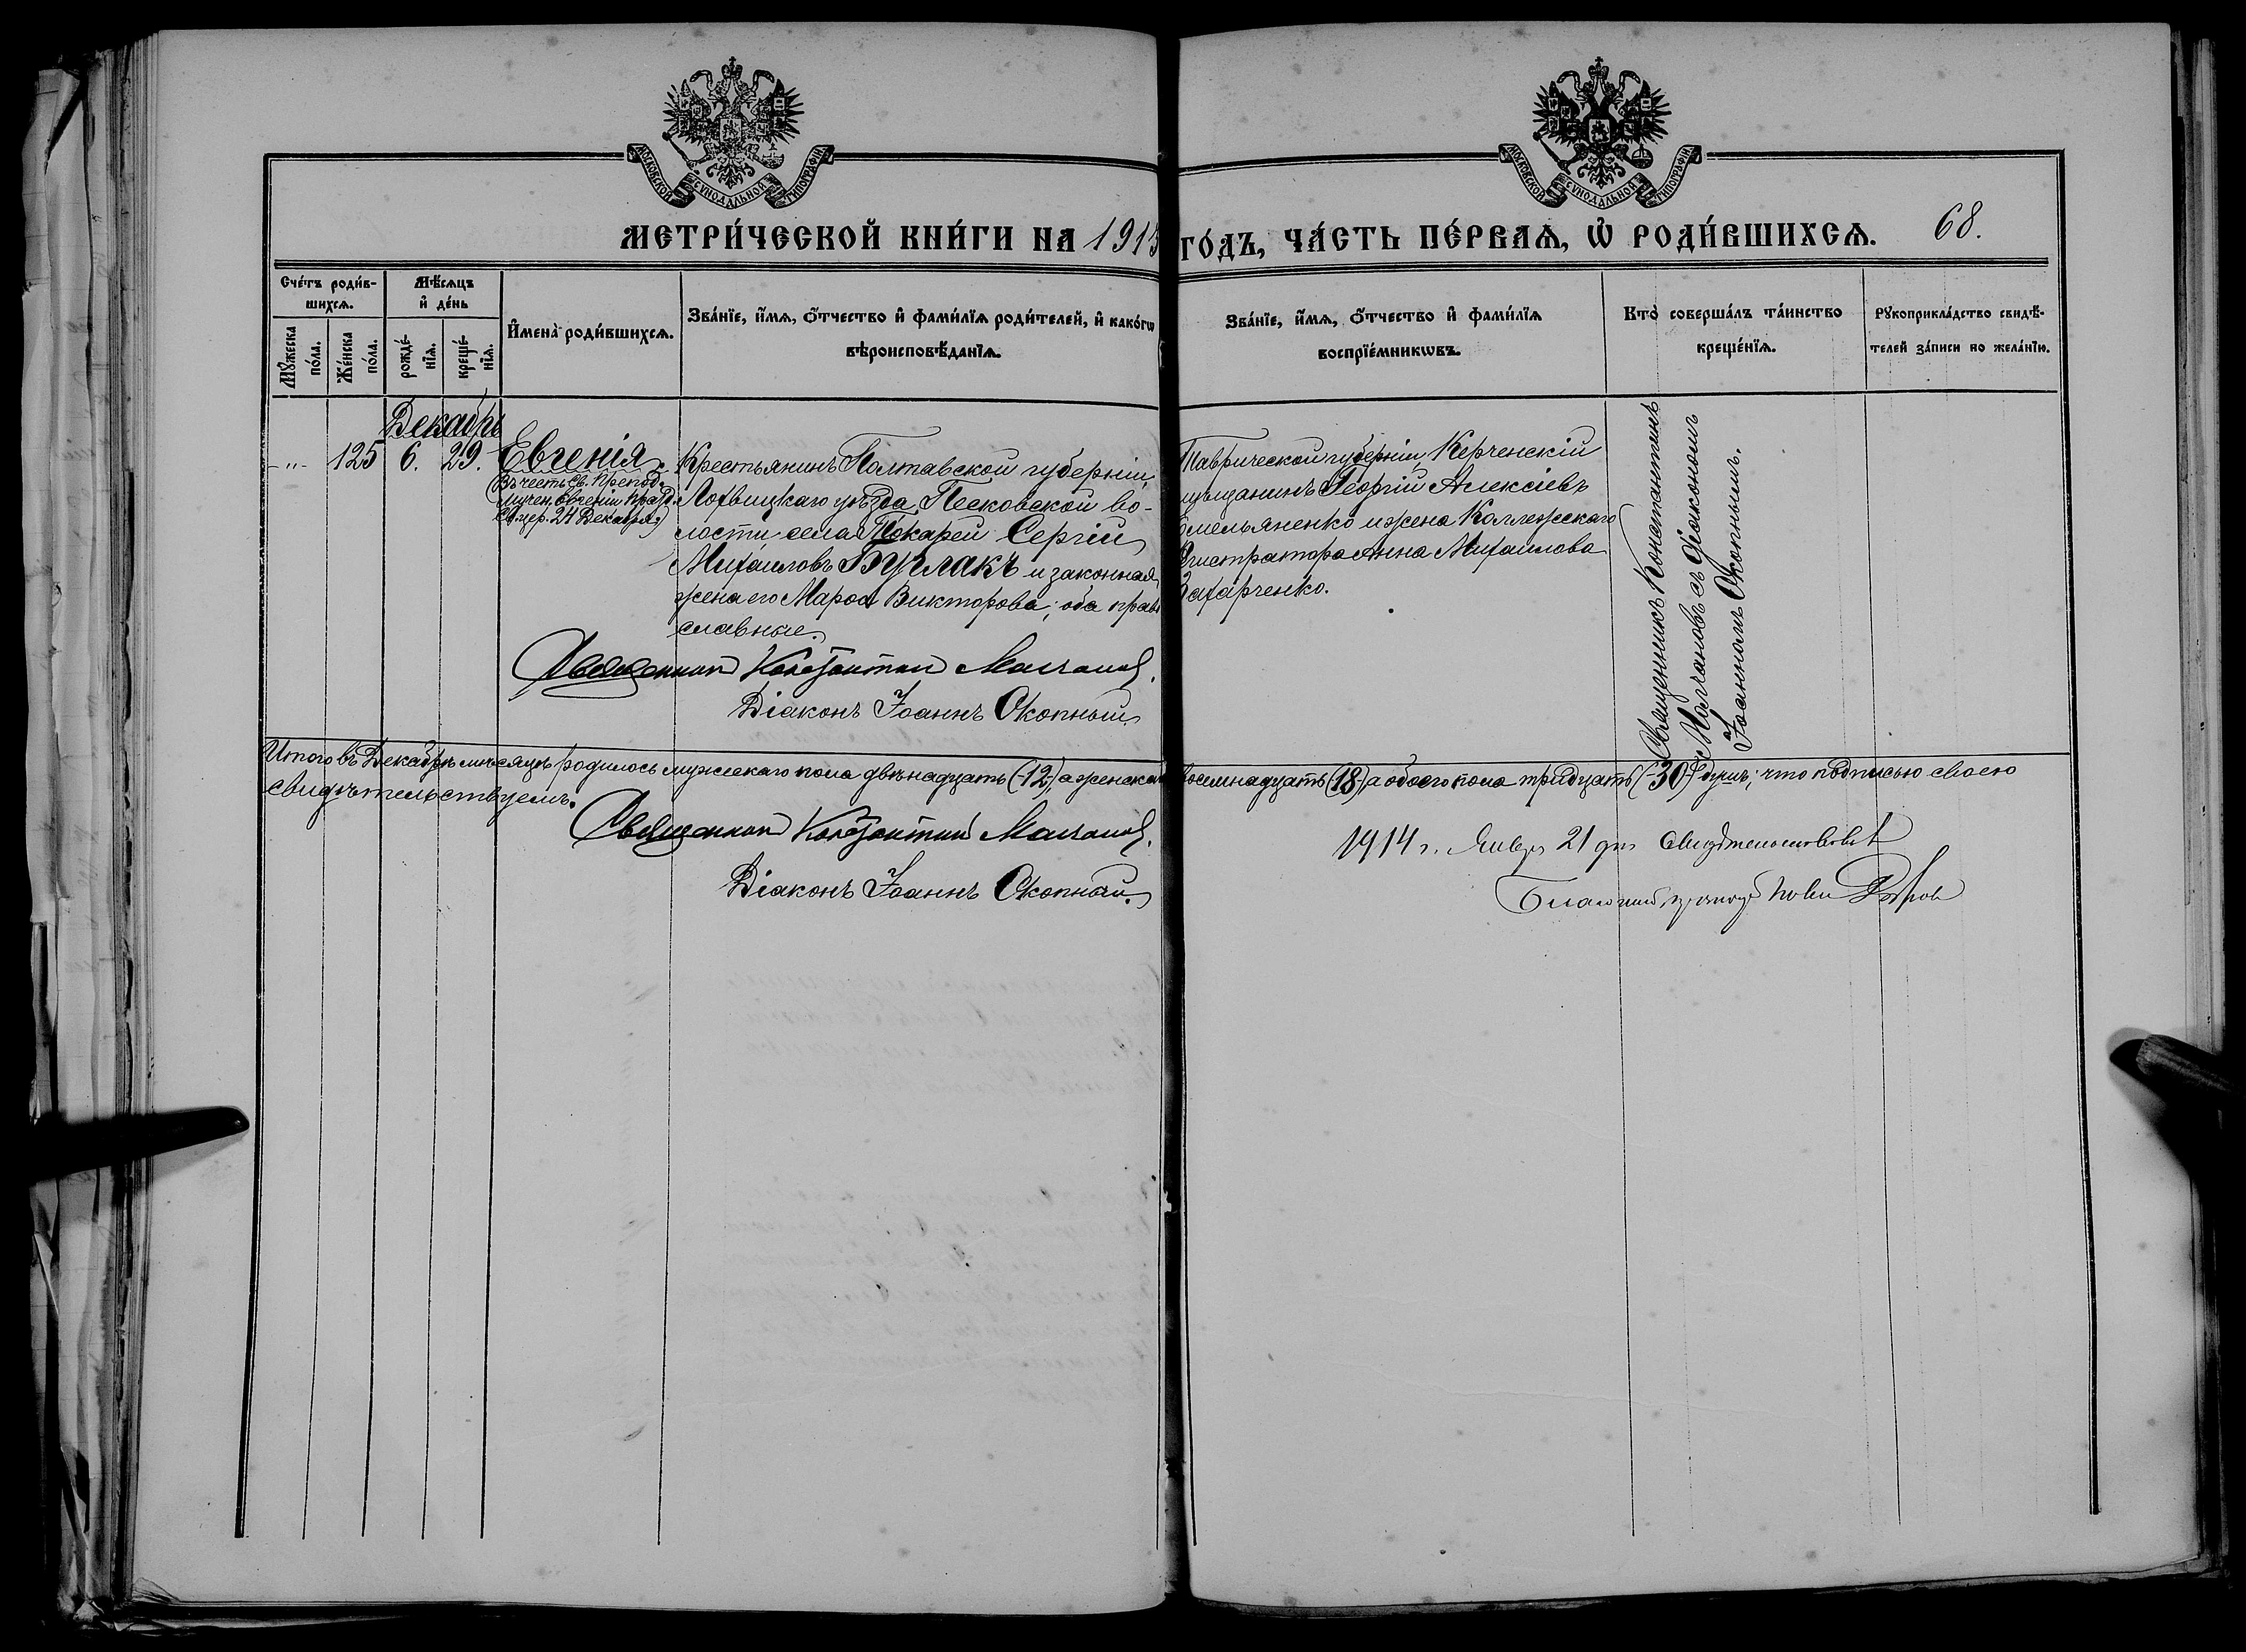 МОСКОВСКОЙ СѴНОДАЛЬНОЙ ТИПОГРАФІИ
МОСКОВСКОЙ СѴНОДАЛЬНОЙ ТИПОГРАФІИ
МЕТРИ́ЧЕСКОЙ КНИ́ГИ НА 1913 ГО́ДЪ, ЧА́СТЬ ПЕ́РВАѦ, Ѡ҆ РОДИ́ВШИХСѦ. 68.
Сче́тъ роди́в-
шихсѧ.
Мѣ́сѧцъ
и҆ де́нь
Мꙋ́жеска
по́ла.
Же́нска
по́ла.
рожде́-
нїѧ.
креще́-
нїѧ.
И҆мена̀ роди́вшихсѧ.
Зва́нїе, и҆́мѧ, ѻ҆́тчество и҆ фами́лїѧ роди́телей, и҆ како́гѡ
вѣроисповѣ́данїѧ.
Зва́нїе, и҆́мѧ, ѻ҆́тчество и҆ фами́лїѧ
воспрїе́мникѡвъ.
Кто̀ соверша́лъ та́инство
креще́нїѧ.
Рꙋкоприкла́дство свидѣ́-
телей за́писи по жела́нїю.
Декабрь
-"- 125 6. 29. Евгенія
(Въ честь Св. Препод.
Мучен. Евгеніи празд.
Св. цер. 24 Декабря)
Крестьянинъ Полтавской губерніи,
Лохвицкаго уѣзда, Песковской во-
лости села Токарей Сергій
Михаиловъ Бурлакъ и законная
жена его Марѳа Викторова; оба право
славные.
Таврической губерніи Керченскій
мѣщанинъ Георгій Алексіевъ
Омельяненко и жена Коллежскаго
Регистратора Анна Михаилова
Захарченко.
Священникъ Константинъ
Молчановъ съ Діакономъ
Іоанномъ Окопнымъ.
Священникъ Константинъ Молчановъ.
Діаконъ Іоаннъ Окопный.
Итого въ Декабрѣ мѣсяцѣ родилось мужескаго пола двѣнадцать (-12-), а женскаго восемнадцать (-18-), а обоего пола тридцать (-30-) душъ; что подписью своею
свидѣтельствуемъ.
Священникъ Константинъ Молчановъ.
Діаконъ Іоаннъ Окопный.
1914 г. Январ. 21 дня свидѣтельствовалъ
Благочинный